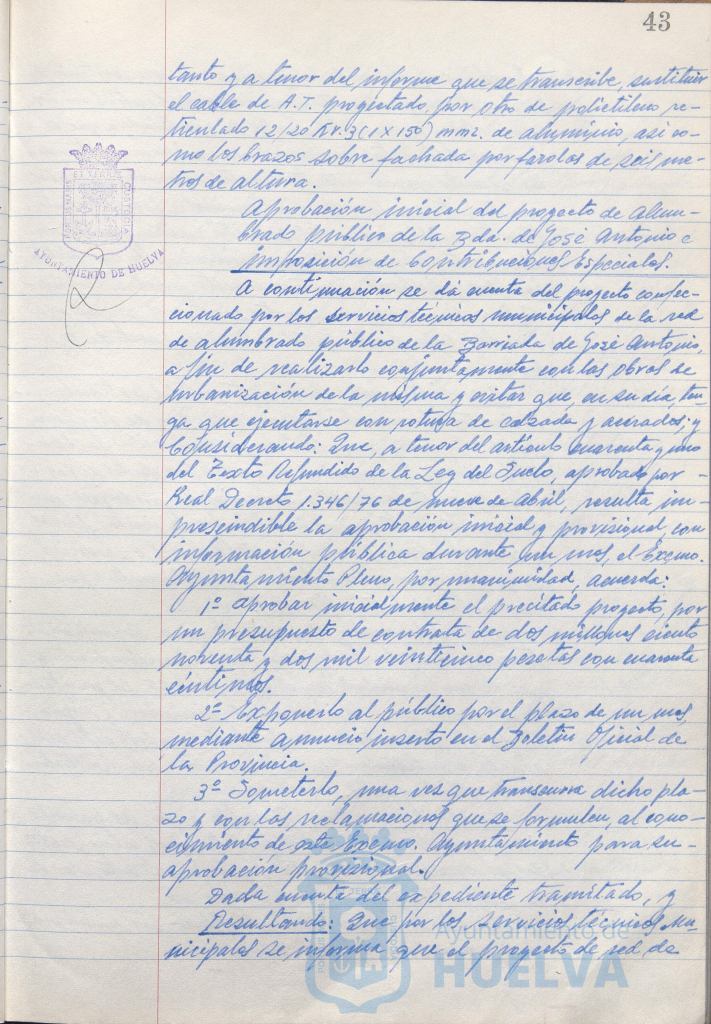 43
tanto y a tenor del informe que se transcribe, sustituir
el cable de A.T. proyectado, por otro de polietileno re-
ticulado 12/20 Kv. 3(1X150) mm2. de aluminio, así co-
mo los brazos sobre fachada por farolas de seis me-
tros de altura.
Aprobación inicial del proyecto de Alum-
brado público de la Bda. de José Antonio e
imposición de Contribuciones Especiales.
A continuación se dá cuenta del proyecto confec-
cionado por los servicios técnicos municipales de la red
de alumbrado público de la Barriada de José Antonio,
a fin de realizarlo conjuntamente con las obras de
urbanización de la misma y evitar que, en su día, ten-
ga que ejecutarse con rotura de calzada y acerados; y
Considerando: Que, a tenor del artículo cuarenta y uno
del Texto Refundido de la Ley del Suelo, aprobado por
Real Decreto 1.346/76 de nueve de Abril, resulta im-
prescindible la aprobación inicial y provisional con
información pública durante un mes, el Excmo.
Ayuntamiento Pleno, por unanimidad, acuerda:
1º Aprobar inicialmente el precitado proyecto, por
un presupuesto de contrata de dos millones ciento
noventa y dos mil veinticinco pesetas con cuarenta
céntimos.
2º Exponerlo al público por el plazo de un mes
mediante anuncio inserto en el Boletín Oficial de
la Provincia.
3º Someterlo, una vez que transcurra dicho pla-
zo y con las reclamaciones que se formulen, al cono-
cimiento de este Excmo. Ayuntamiento para su
aprobación provisional.
Dada cuenta del expediente tramitado, y
Resultando: Que por los servicios técnicos Mu-
nicipales se informa que el proyecto de red de
AYUNTAMIENTO DE HUELVA
Ayuntamiento de
HUELVA